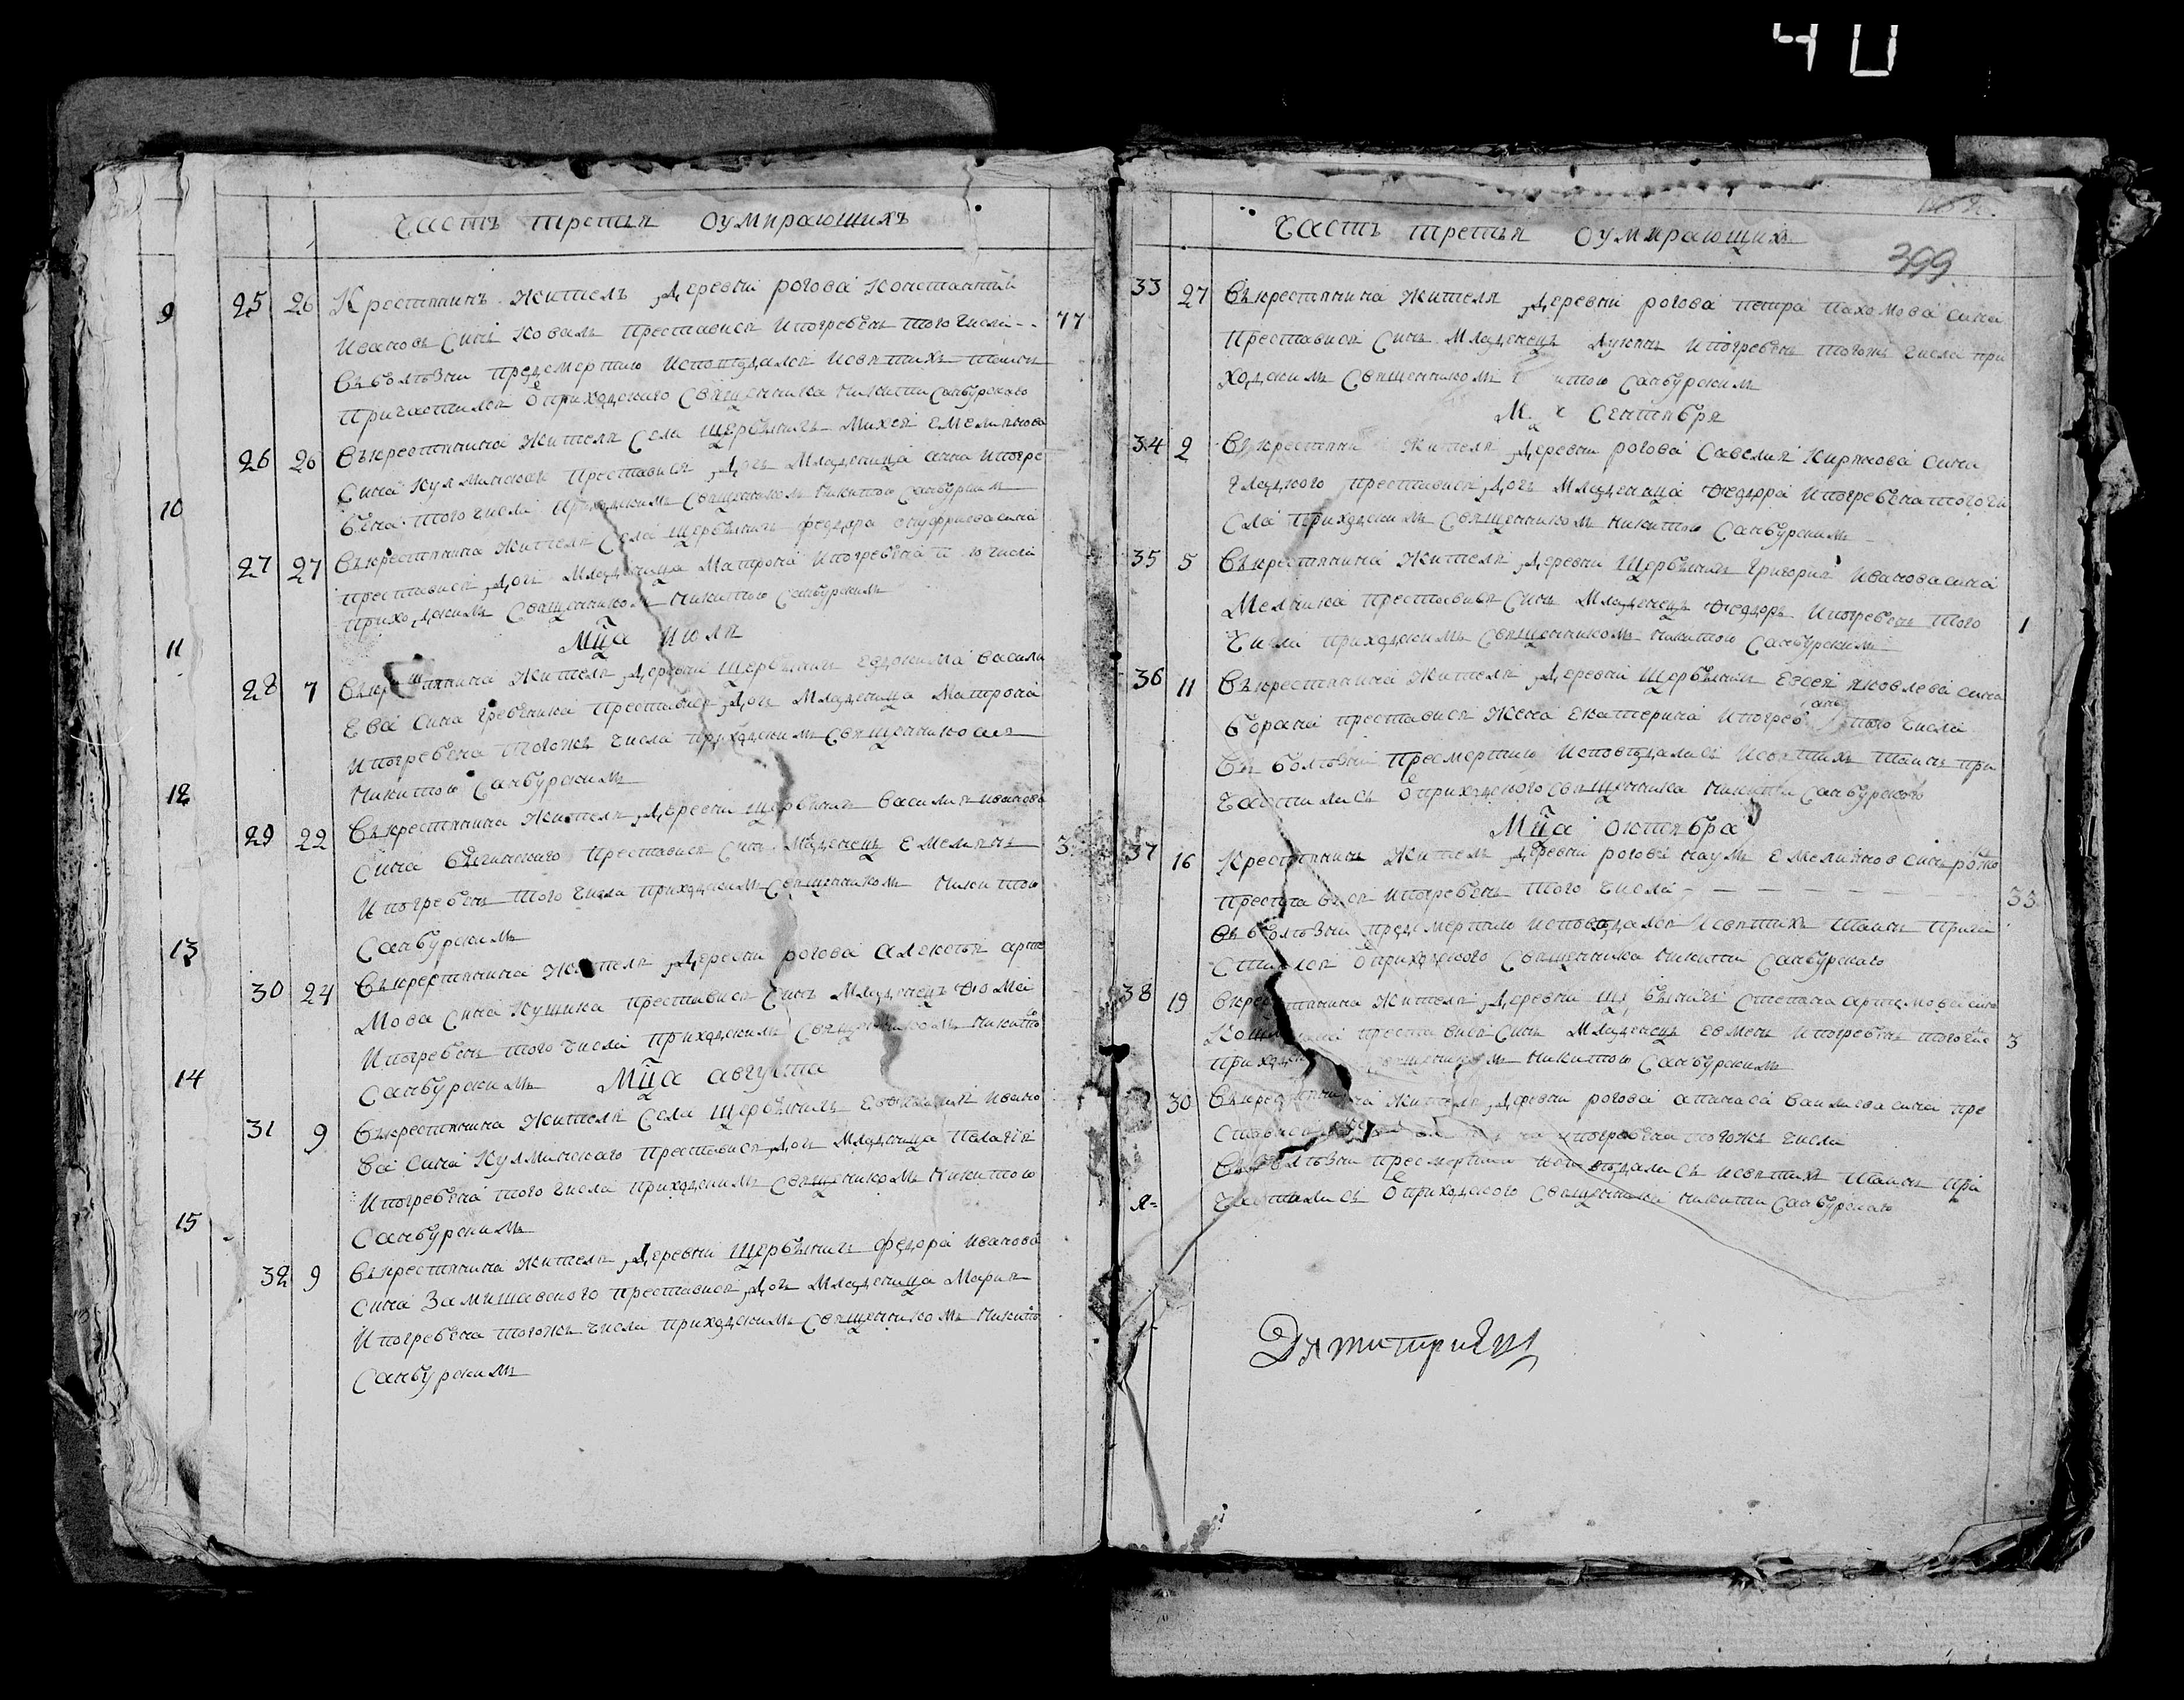 40
Часть третья оумирающихъ
9
25 26 Крестянинъ житель деревни рогова константий
Ивановъ синъ коваль преставися и погребенъ того числа 77
въ болѣзни предсмертию исповѣдался и святихъ таинъ
причастился от приходского священника никити самбурского
26 26 въ крестянина жителя села щербѣнихъ михея емелиянова
10
сина кулминская преставися дочь младеница анна и погре
бена того числа приходскимъ священникомъ никитою самбурским
27 27 въ крестянина жителя села щербѣнихъ федора онуфриева сина
преставися дочь младеница матрона и погребена числа
приходскимъ священникомъ никитою самбурскимъ
11
Мца июля
28 7 въ крестянина жителя деревни евдокима васили
ева сина гребѣника преставися дочь младеница матрона
и погребена тогожъ числа приходскимъ священникомъ
12
никитою самбурскимъ
29 22 въ крестянина жителя деревни щербѣнихъ василия иванова
сина преставися синъ младенецъ емелиянъ 3
и погребенъ того числа приходскимъ священникомъ никитою
13
самбурскимъ
30 24 въ крестянина жителя деревни рогова алексѣя арте
мова сина кущика преставися синъ младенецъ фома
и погребенъ того числа приходскимъ священникомъ никитою
14
самбурскимъ Мца августа
31 9 въ крестянина жителя села щербѣнихъ ивано
ва сина кулминскаго преставися дочь младеница пелагия
и погребена того числа приходскимъ священникомъ никитою
15
самбурскимъ
32 9 въ крестянина жителя деревни щербѣнихъ федора иванова
сина замишавского преставися дочь младеница мария
и погребена тогожъ числа приходскимъ священникомъ никитою
самбурскимъ
Часть третья оумирающихъ
399
33 27 въ крестянина жителя деревни рогова петра пахомова сина
преставися синъ младенецъ лукиянъ и погребенъ тогожъ числа при
ходскимъ священникомъ самбурскимъ
сентября
34 2 жителя деревни рогова савелия кириякова сина
гладкого преставися дочь младеница федора и погребена того чи
сла приходскимъ священникомъ никитою самбурскимъ
35 5 въ крестянина жителя деревни щербѣнихъ григория иванова сина
мелника преставися синъ младенецъ федоръ и погребенъ того 1
числа приходскимъ священникомъ никитою самбурскимъ
36 11 въ крестянина жителя деревни щербѣнихъ евсея яковлева сина
борана преставися жена екатерина и погребена того числа
въ болѣзни пресмертию исповѣдалися и святихъ таинъ при
частилась от приходского священника никити самбурского
Мца октября
37 16 Крестянинъ житель деревни рогова наумъ емелиянов синъ
преставися и погребенъ того числа 33
въ болѣзни предсмертию исповѣдался и святихъ таинъ прича
стился от приходского священника никити самбурскаго
38 19 жителя деревни степана артемова сина
преставися синъ младенецъ евменъ и погребенъ того числа 3
никитою самбурскимъ
30 жителя деревни рогова апанаса василева сина пре
и погребена тогожъ числа
пресмертию исповѣдались и святихъ таинъ при
частилась от приходского священника никити самбурскаго